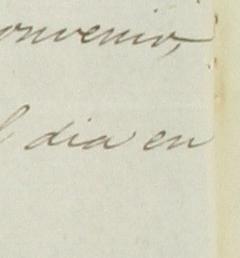 onvenio,
l dia en